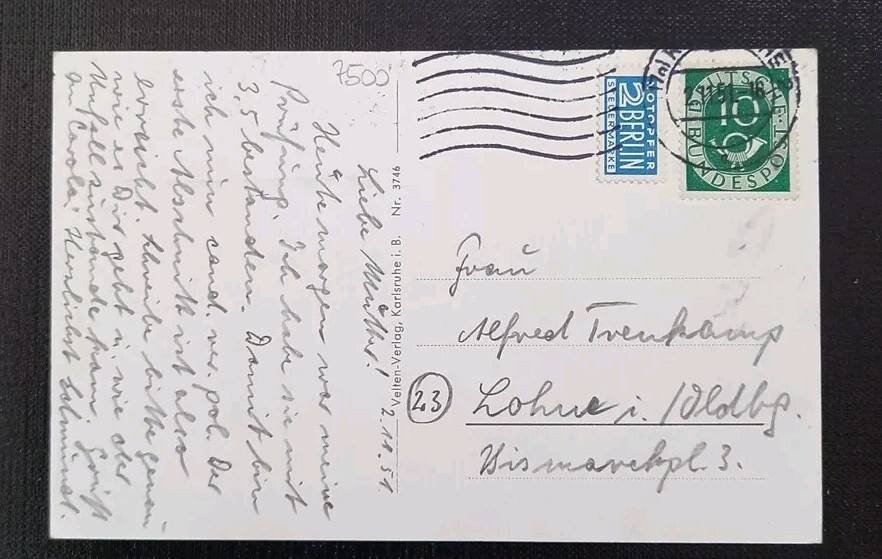 7500
2.11.51
Liebe Mutter!
Heute morgen war meine
Prüfung. Ich habe sie mit
3,5 bestanden. Damit bin
ich nun cand. rer. pol. Der
erste Abschnitt ist also
erreicht. Schreibe bitte genau
wie es Dir geht u. wie der
Unfall zustande kam. Grüß
an Herzlichst
Velten-Verlag, Karlsruhe i. B. Nr. 3746
NOTOPFER
2 BERLIN
STEUERMARKE
DEUTSCHE
10
BUNDESPOST
Frau
Alfred Trenkamp
(23) Lohne i./Oldbg.
Bismarckpl. 3.